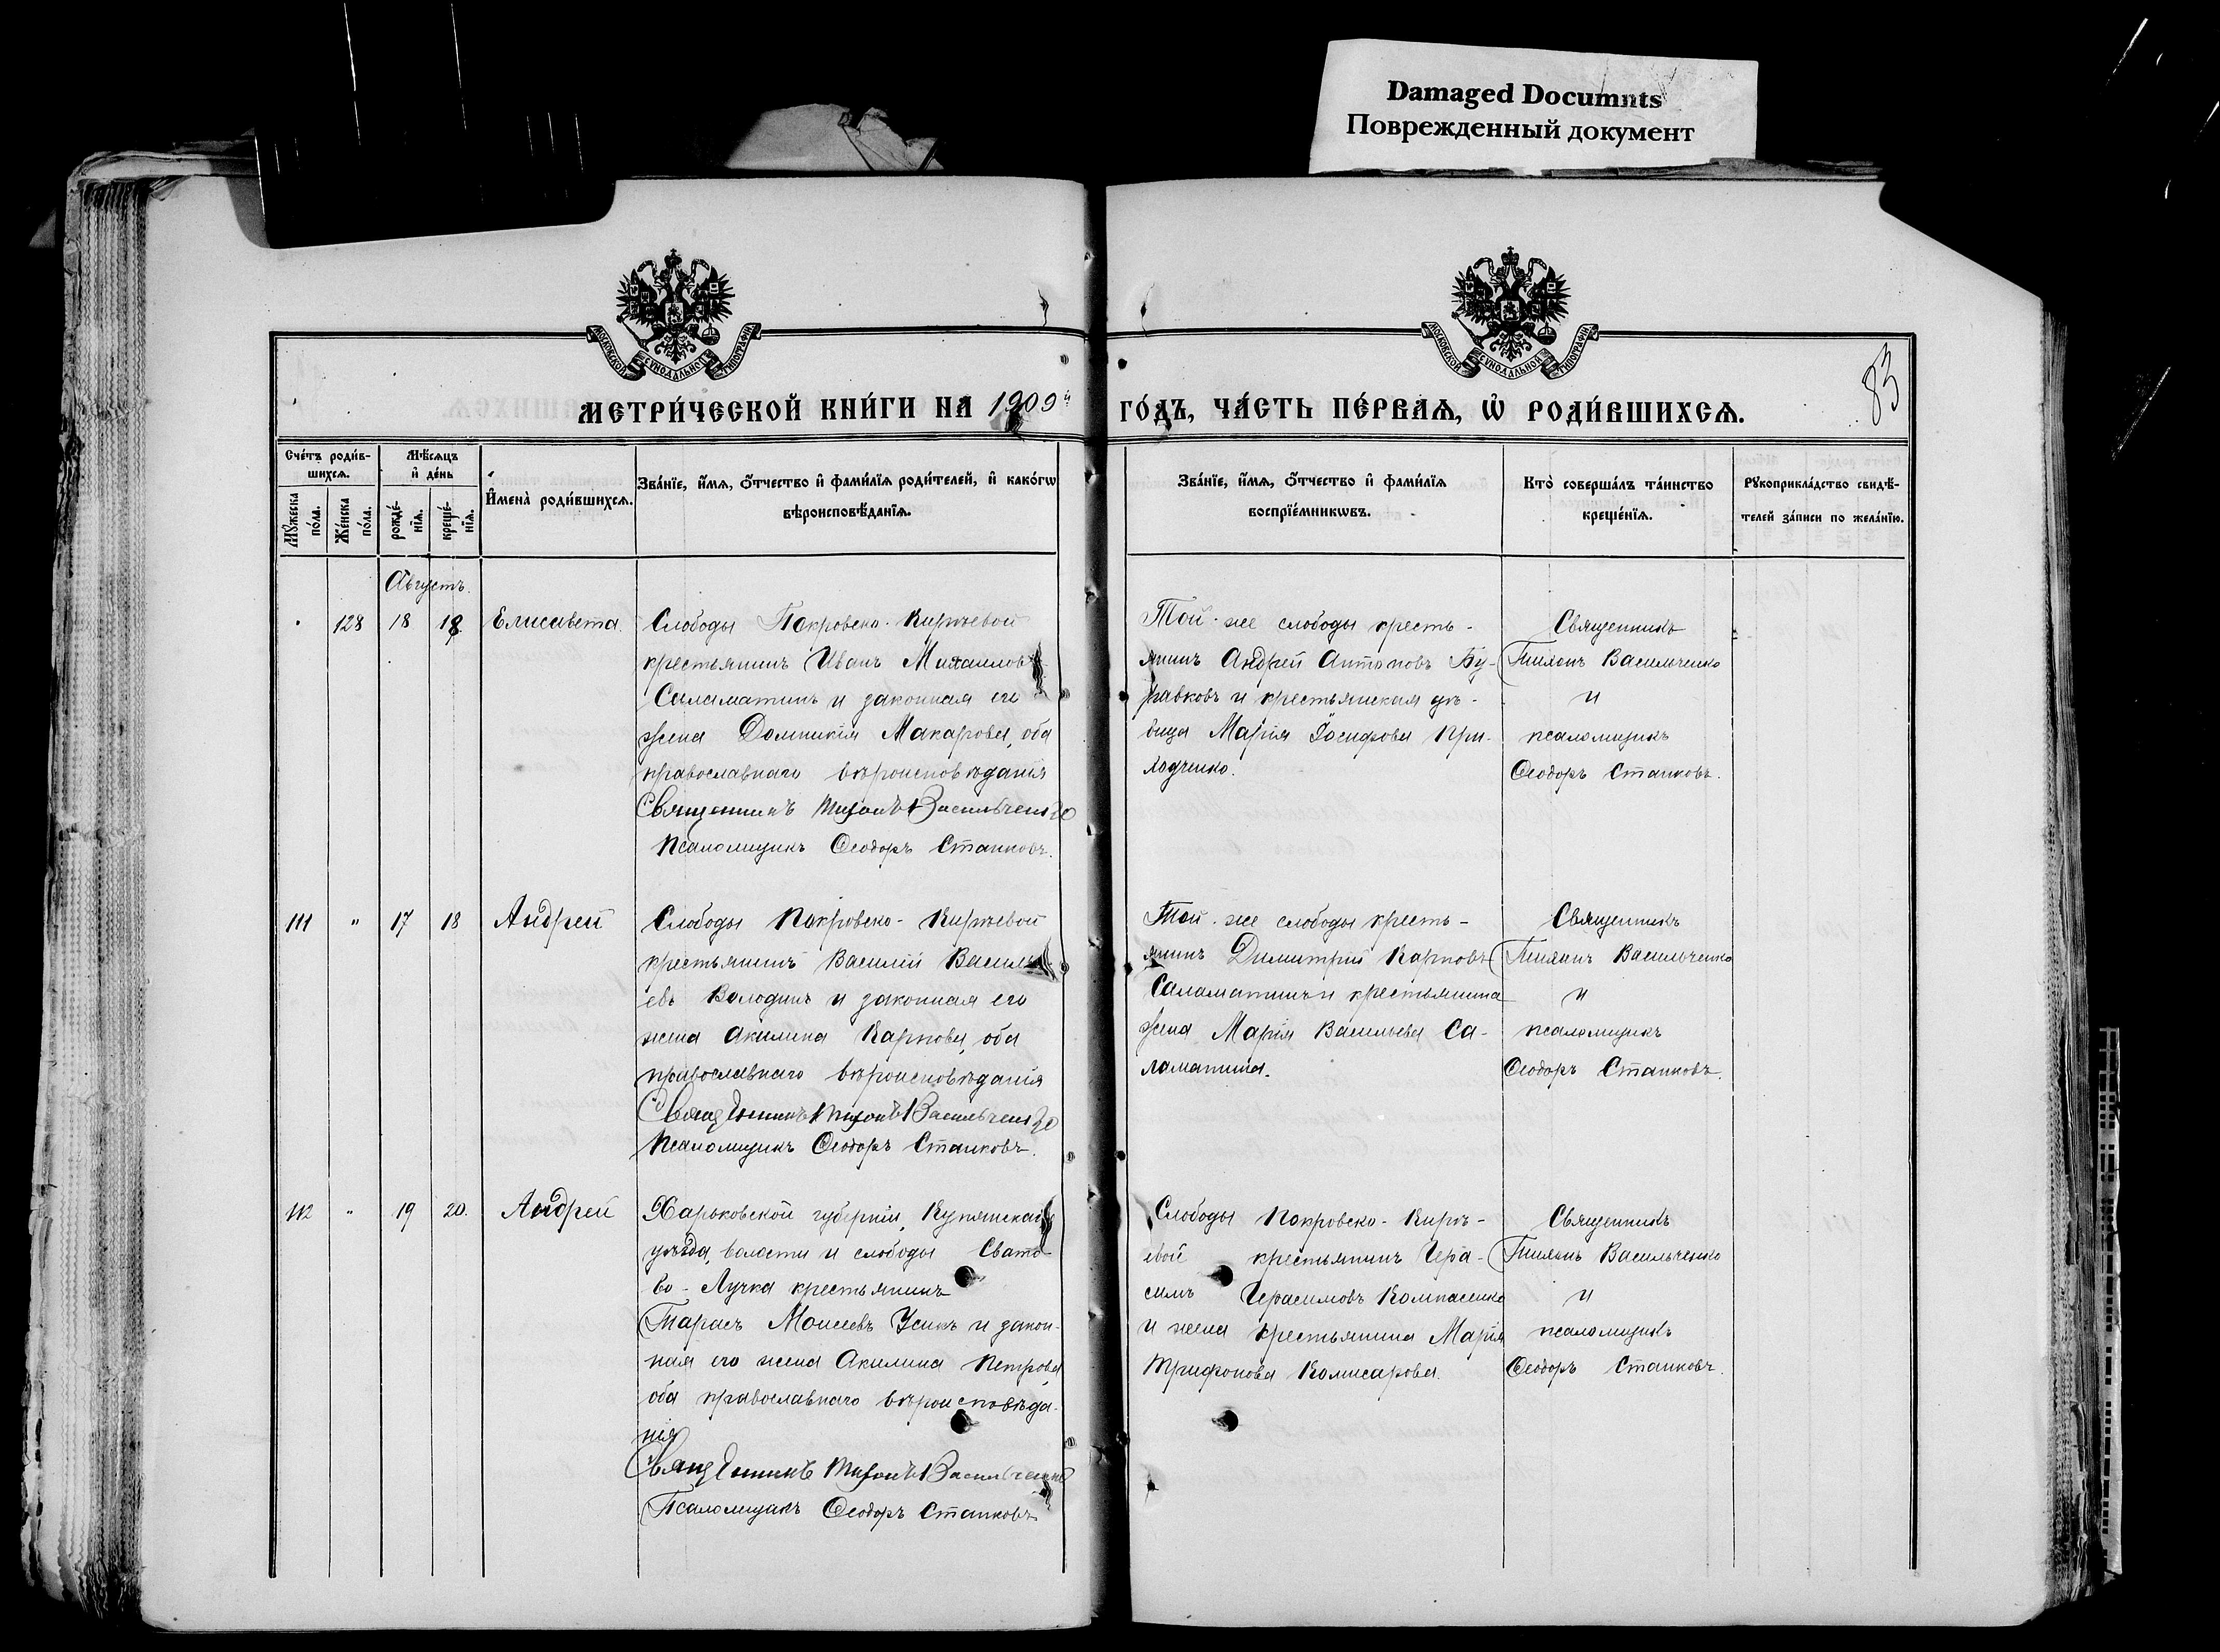 Damaged Documnts
Поврежденный документ
МОСКОВСКОЙ СѴНОДАЛЬНОЙ ТИПОГРАФІИ
МОСКОВСКОЙ СѴНОДАЛЬНОЙ ТИПОГРАФІИ
83
МЕТРИ́ЧЕСКОЙ КНИ́ГИ НА 1909й ГО́ДЪ, ЧА́СТЬ ПЕ́РВАѦ, Ѡ҆ РОДИ́ВШИХСѦ.
Сче́тъ роди́в-
шихсѧ.
Мꙋ́жеска по́ла.
Же́нска по́ла.
Мѣ́сѧцъ
и҆ де́нь
рожде́-нїѧ.
креще́-нїѧ.
И҆мена̀ роди́вшихсѧ.
Зва́нїе, и҆́мѧ, ѻ҆́тчество и҆ фами́лїѧ роди́телей, и҆ како́гѡ
вѣроисповѣ́данїѧ.
Зва́нїе, и҆́мѧ, ѻ҆́тчество и҆ фами́лїѧ
воспрїе́мникѡвъ.
Кто̀ соверша́лъ та́инство
креще́нїѧ.
Рꙋкоприкла́дство свидѣ́-
телей за́писи по жела́нїю.
Августъ.
128 18 18 Елисавета.
Слободы Покровско-Киртѣевой
крестьянинъ Иванъ Михаиловъ
Саламатинъ и законная его
жена Домникія Макарова, оба
православнаго вѣроисповѣданія
Священникъ Тихонъ Васильченко
Псаломщикъ Ѳеодоръ Станковъ.
Той-же слободы кресть-
янинъ Андрей Антоновъ Бу-
равковъ и крестьянская дѣ-
вица Марія Іосифова При-
ходченко.
Священникъ
Тихонъ Васильченко
и
псаломщикъ
Ѳеодоръ Станковъ.
111 " 17 18 Андрей
Слободы Покровско-Киртѣевой
крестьянинъ Василій Василь-
евъ Володинъ и законная его
жена Акилина Карпова, оба
православнаго вѣроисповѣданія
Священникъ Тихонъ Васильченко
Псаломщикъ Ѳеодоръ Станковъ.
Той-же слободы кресть-
янинъ Димитрій Карповъ
Саламатинъ и крестьянина
жена Марія Васильева Са-
ламатина.
Священникъ
Тихонъ Васильченко
и
псаломщикъ
Ѳеодоръ Станковъ.
112 " 19 20. Андрей
Харьковской губерніи, Купянскаго
уѣзда, волости и слободы Свато-
во-Лучка крестьянинъ
Тарасъ Моисеевъ Усикъ и закон-
ная его жена Акилина Петрова,
оба православнаго вѣроисповѣда-
нія
Священникъ Тихонъ Васильченко
Псаломщикъ Ѳеодоръ Станковъ
Слободы Покровско-Киртѣ-
евой крестьянинъ Гера-
симъ Герасимовъ Компасенко
и жена крестьянина Марія
Трифонова Комисарова.
Священникъ
Тихонъ Васильченко
и
псаломщикъ
Ѳеодоръ Станковъ.